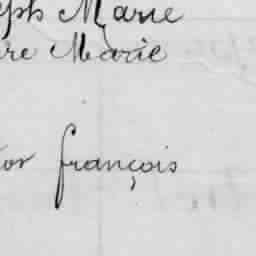 eph Marie
re Marie
or françois